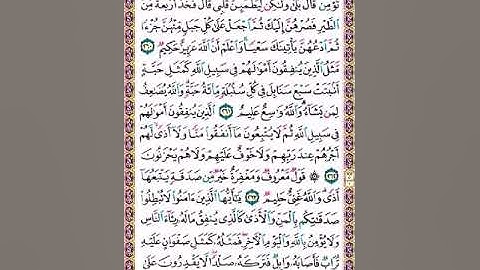 تُؤْمِن قَالَ بَلَىٰ وَلَٰكِن لِّيَطْمَئِنَّ قَلْبِي قَالَ فَخُذْ أَرْبَعَةً مِّنَ
ٱلطَّيْرِ فَصُرْهُنَّ إِلَيْكَ ثُمَّ ٱجْعَلْ عَلَىٰ كُلِّ جَبَلٍ مِّنْهُنَّ جُزْءًا
ثُمَّ ٱدْعُهُنَّ يَأْتِينَكَ سَعْيًا وَٱعْلَمْ أَنَّ ٱللَّهَ عَزِيزٌ حَكِيمٌ ٢٦٠
مَّثَلُ ٱلَّذِينَ يُنفِقُونَ أَمْوَٰلَهُمْ فِي سَبِيلِ ٱللَّهِ كَمَثَلِ حَبَّةٍ
أَنۢبَتَتْ سَبْعَ سَنَابِلَ فِي كُلِّ سُنۢبُلَةٍ مِّا۟ئَةُ حَبَّةٍ وَٱللَّهُ يُضَٰعِفُ
لِمَن يَشَآءُ وَٱللَّهُ وَٰسِعٌ عَلِيمٌ ٢٦١ ٱلَّذِينَ يُنفِقُونَ أَمْوَٰلَهُمْ
فِي سَبِيلِ ٱللَّهِ ثُمَّ لَا يُتْبِعُونَ مَآ أَنفَقُوا۟ مَنًّا وَلَآ أَذًى لَّهُمْ
أَجْرُهُمْ عِندَ رَبِّهِمْ وَلَا خَوْفٌ عَلَيْهِمْ وَلَا هُمْ يَحْزَنُونَ
٢٦٢ ۞ قَوْلٌ مَّعْرُوفٌ وَمَغْفِرَةٌ خَيْرٌ مِّن صَدَقَةٍ يَتْبَعُهَآ
أَذًى وَٱللَّهُ غَنِيٌّ حَلِيمٌ ٢٦٣ يَٰٓأَيُّهَا ٱلَّذِينَ ءَامَنُوا۟ لَا تُبْطِلُوا۟
صَدَقَٰتِكُم بِٱلْمَنِّ وَٱلْأَذَىٰ كَٱلَّذِي يُنفِقُ مَالَهُۥ رِئَآءَ ٱلنَّاسِ
وَلَا يُؤْمِنُ بِٱللَّهِ وَٱلْيَوْمِ ٱلْءَاخِرِ فَمَثَلُهُۥ كَمَثَلِ صَفْوَانٍ عَلَيْهِ
تُرَابٌ فَأَصَابَهُۥ وَابِلٌ فَتَرَكَهُۥ صَلْدًا لَّا يَقْدِرُونَ عَلَىٰ